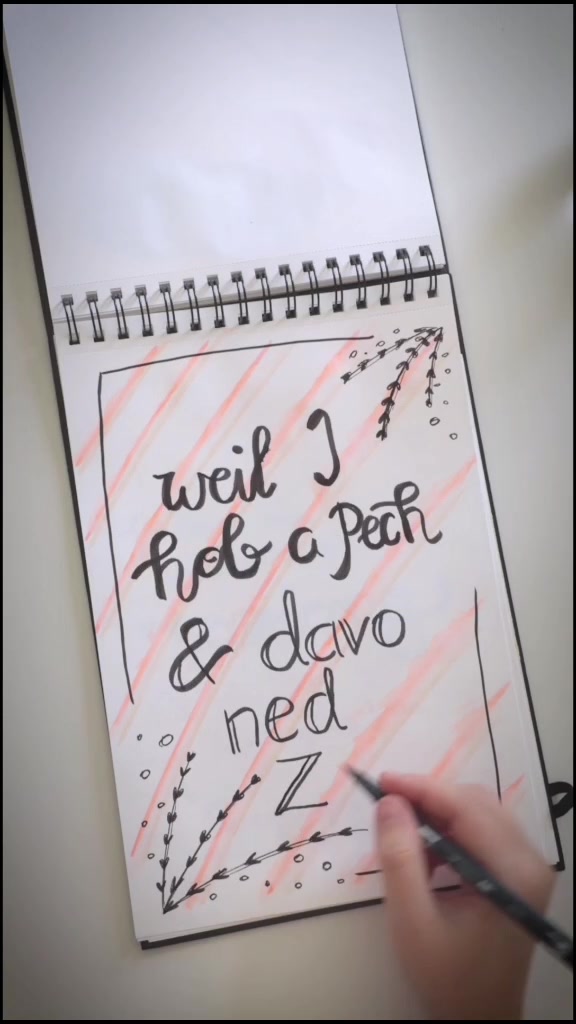 weil I
hob a Pech
& davo
ned
Z